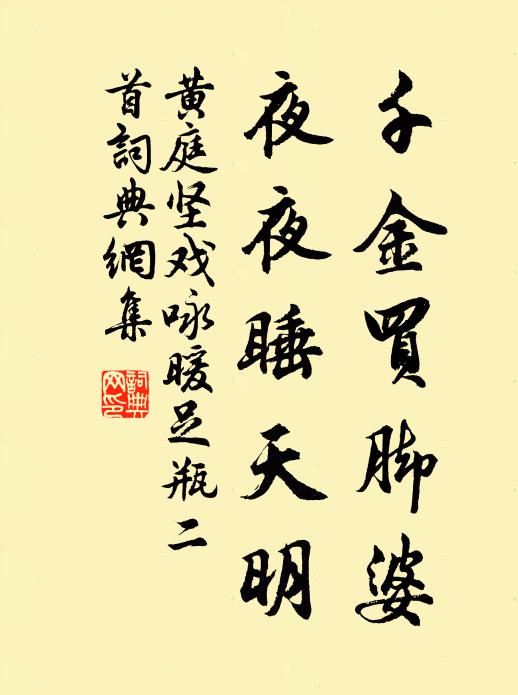 千金買脚婆
夜夜睡天明
黄庭坚戏咏暖足瓶二
首詞典網集
詞典
网印